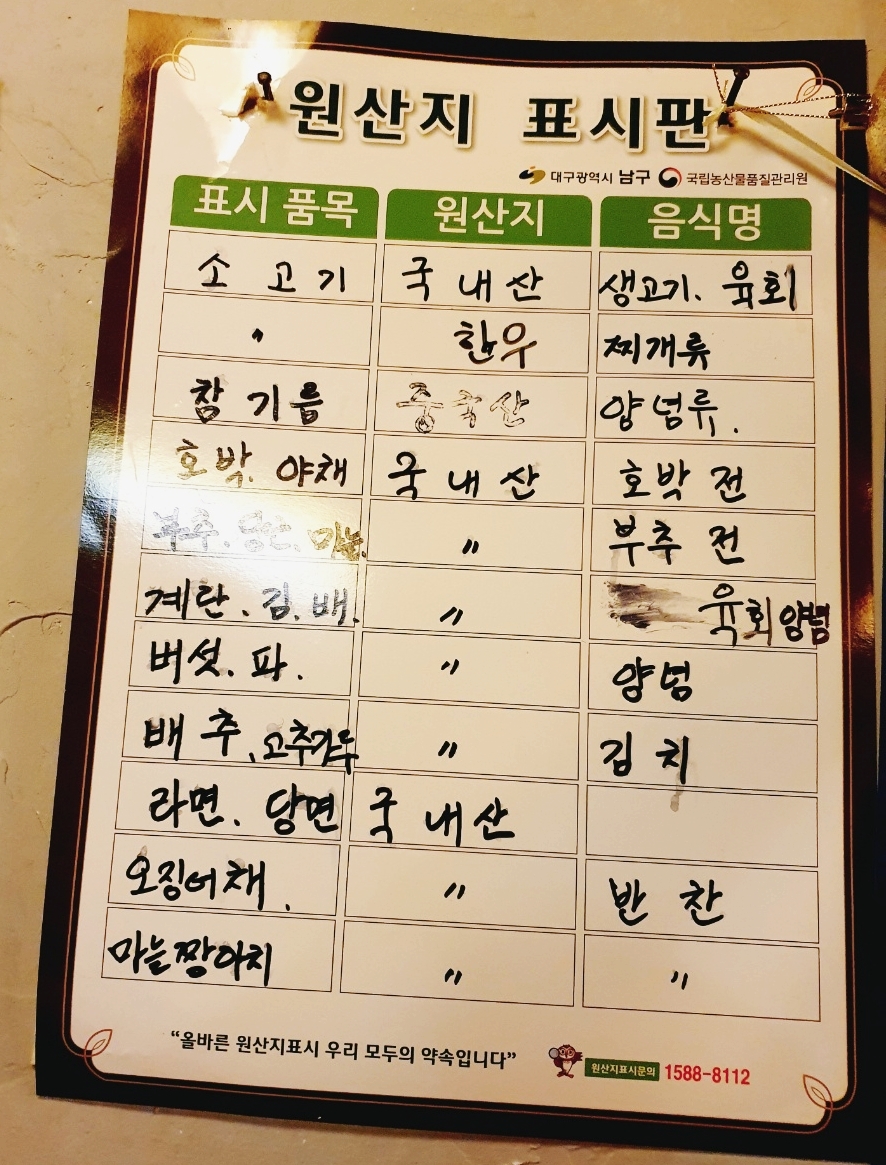 원산지 표시판
대구광역시 남구 국립농산물품질관리원
표시 품목 원산지 음식명
소 고기 국 내 산 생고기. 육회
〃 한우 찌개류
참 기름 중국산 양념류.
호박. 야채 국 내 산 호박 전
부추. 당근. 마늘. 〃 부추 전
계란. 김. 배. 〃 육회양념
버섯. 파. 〃 양념
배 추, 고추가루 〃 김 치
라면. 당면 국 내 산
오징어채. 〃 반 찬
마늘짱아치 〃 〃
“올바른 원산지표시 우리 모두의 약속입니다” 원산지표시문의 1588-8112